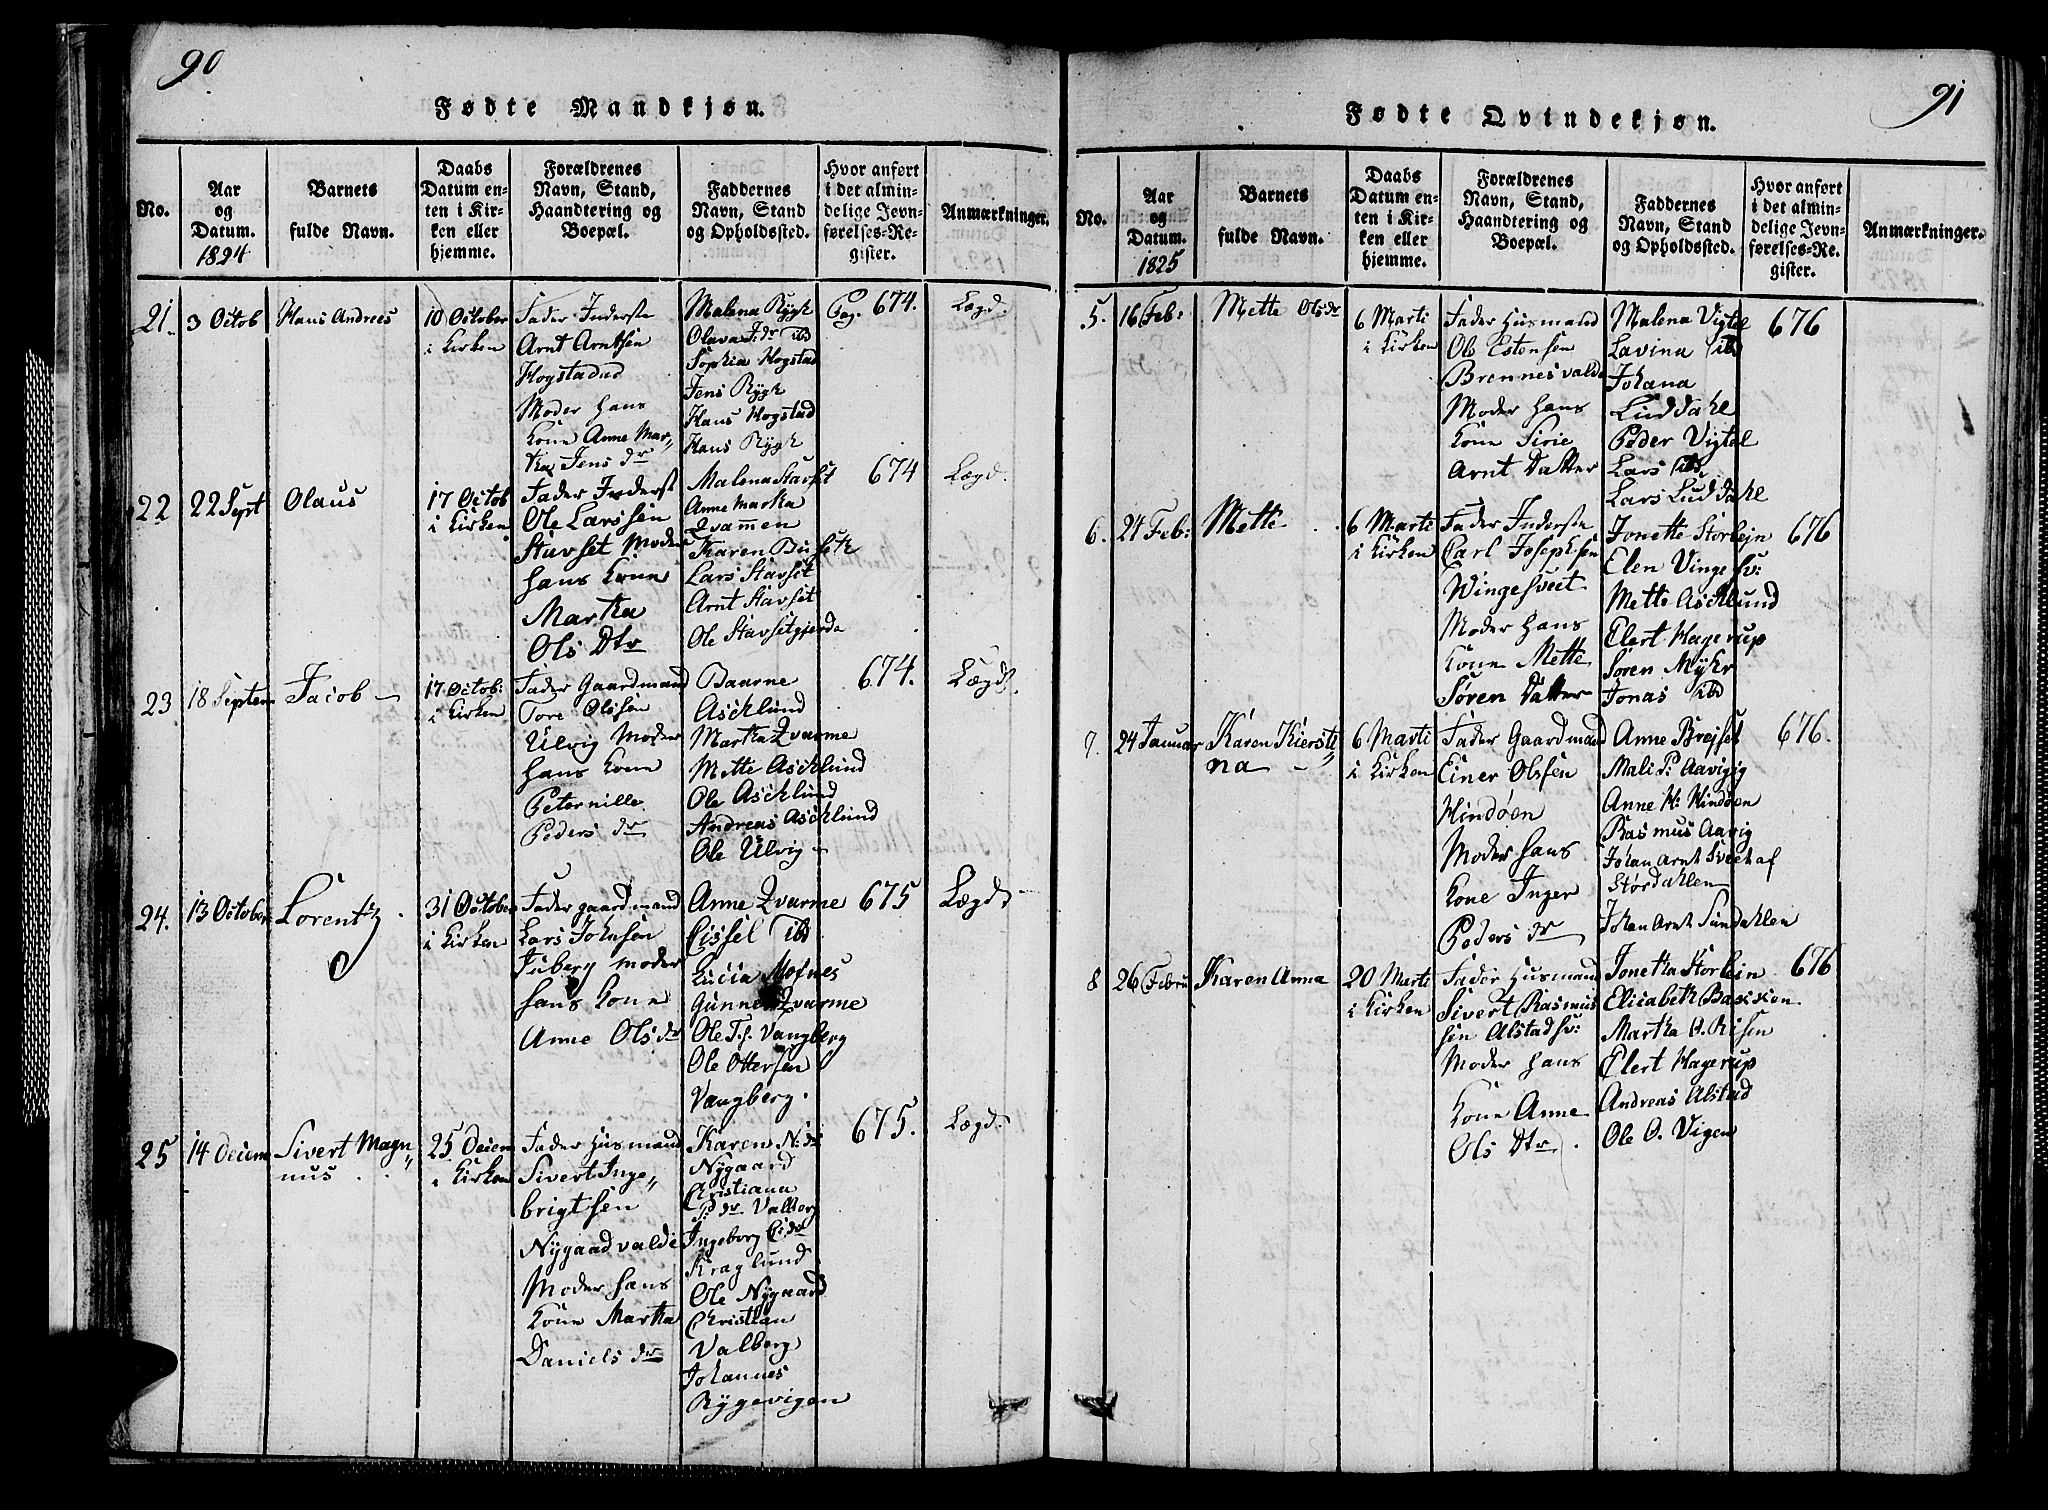 90
Fødte Mandkjøn.
No.
Aar
og
Datum.
1824
Barnets
fulde Navn.
Daabs
Datum en-
ten i Kir-
ken eller
hjemme.
Forældrenes
Navn, Stand,
Haandtering og
Boepæl.
Faddernes
Navn, Stand
og Opholdssted.
Hvor anført
i det almin-
delige Jevn-
førelses-Re-
gister.
Anmærkninger.
21.
3 Octob
Hans Andreas
10 October
i Kirken
Fader Inderste
Arnt Arntsen
Hogstadud
Moder hans
Kone Anne Mar„
ta Jens dr
Malena Rygh
Olava J:dr ibd
Sophia Hogstad
Jens Rygh
Hans Hogstad
Hans Rygh
Pag. 674.
Lægd.
22
22 Sept
Olaus
17 Octob
i Kirken
Fader Inderst
Ole Larssen
Stavset Moder
hans Kone
Martha
Ols Dtr
Malena Stavset
Anne Martha
Qvammen
Karen Buseth
Lars Stavset
Arnt Stavset
Ole Stavsetgjerde
674
Lægd.
23
18 Septem
Jacob
17 Octob:
i Kirken
Fader Gaardmand
Tore Olssen
Ulvig Moder
hans Kone
Peternille
Peders dr
Baarne
Aschlund
Martha Qvarme
Mette Aschlund
Ole Aschlund
Andreas Aschlund
Ole Ulvig
674.
Lægd.
24.
13 October
Lorentz
31 October
i Kirken
Fader gaardmand
Lars Johnsen
Juberg moder
hans Kone
Anne Ols dr
Anne Qvarme
Cissel ibd
Lucia Mofnes
Gunne Qvarme
Ole T.s. Vangberg
Ole Ottersen
Vangberg.
675
Lægd
25
14 Decem
Sivert Magn„
nus
25 Decem
i Kirken
Fader Husmand
Sivert Inge„
brigtsen
Nygaad valde
Moder hans
Kone Martha
Daniels dr
Karen N:dr
Nygaard
Christiana
P: dr Valberg
Ingeborg C:dr
Kraglund
Ole Nygaard
Christian
Valberg
Johannes
Rygevigen
675.
Lægd.
91
Fødte Qvindekjøn.
No.
Aar
og
Datum.
1825
Barnets
fulde Navn.
Daabs
Datum en-
ten i Kir-
ken eller
hjemme.
Forældrenes
Navn, Stand,
Haandtering og
Boepæl.
Faddernes
Navn, Stand
og Opholdssted.
Hvor anført
i det almin-
delige Jevn-
førelses-Re-
gister.
Anmærkninger.
5.
16 Feb:
Mette Ols dr
6 Marti
i Kirken
Fader Husmand
Ole Estensen
Brennesvalde
Moder hans
Kone Sirie
Arnt Datter
Malena Vigtel
Lavina ibd
Johana
Luddahl
Peder Vigtel
Lars ibd
Lars Luddahl
676
6.
24 Feb:
Mette
6 Marti
i Kirken
Fader Inderste
Carl Josephsen
Wingesveit
Moder hans
Kone Mette
Søren Datter
Jonette Storlejn
Elen Vinge sv:
Mette Aschlund
Elert Hagerup
Søren Myhr
Jonas ibd
676
7.
24 Januar
Karen Kiersti„
na
6 Marti
i Kirken
Fader Gaardmand
Einer Olssen
Hindøen
Moder hans
Kone Inger
Peders dr
Anne Brejset
Mali P: Aavigig
Anne H: Hindøen
Rasmus Aavig
Johan Arnt Sveet af
Stordahlen
Johan Arnt Sundahlen
676.
8
26 Febru
Karen Anna
20 Marti
i Kirken
Fader Husmand
Sivert Rasmus
sen Alstad sv:
Moder hans
Kone Anne
Ols Dtr.
Jonetha Storlein
Elisabeth
Martha
Elert Hagerup
Andreas Alstad
Ole O. Vigen
676